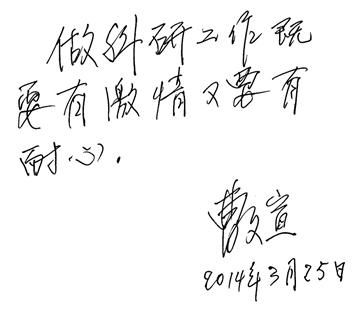 做科研工作既
要有激情又要有
耐心.
2014年3月25日